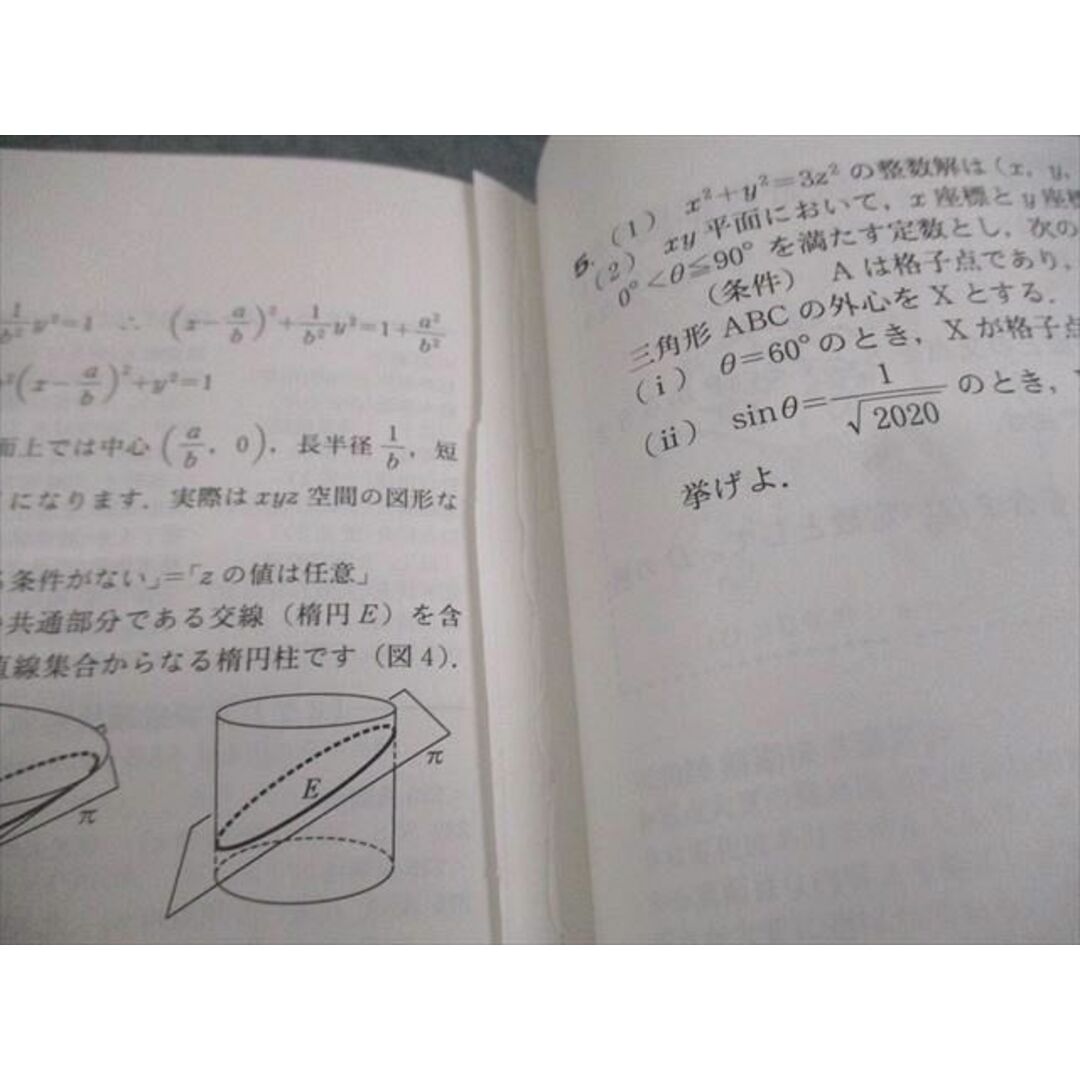 1/b² y²=1 ∴ (x−a/b)²+1/b² y²=1+a²/b²
²(x−a/b)²+y²=1
面上では中心(a/b, 0), 長半径 1/b, 短
になります. 実際は xyz 空間の図形な
条件がない」=「z の値は任意」
共通部分である交線（楕円 E）を含
直線集合からなる楕円柱です（図4）.
π
E
π
6. (1) x²+y²=3z² の整数解は(x, y,
(2) xy 平面において, x 座標と y 座標
0°<θ≦90° を満たす定数とし, 次の
（条件） A は格子点であり,
三角形 ABC の外心を X とする.
(i) θ=60° のとき, X が格子点
(ii) sinθ=1/√2020 のとき,
挙げよ.